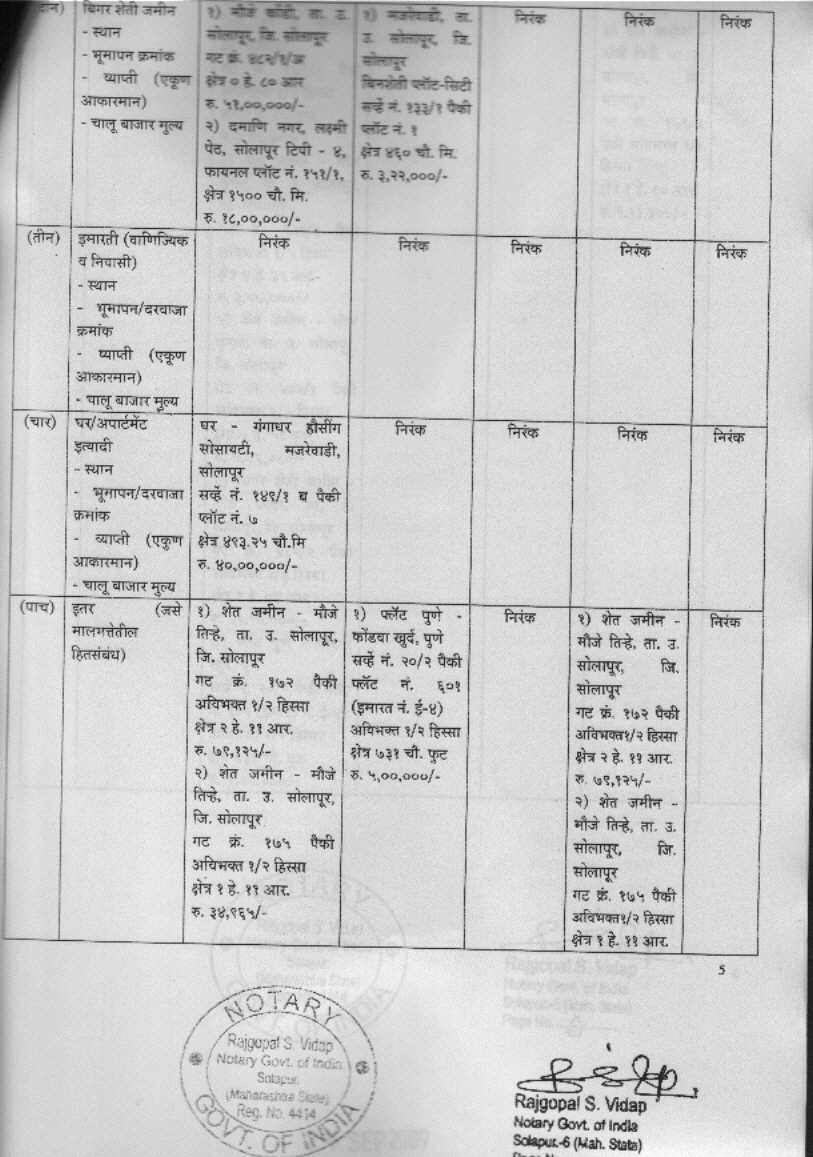 दोन)
बिगर शेती जमीन
- स्थान
- भूमापन क्रमांक
- व्याप्ती (एकूण
आकारमान)
- चालू बाजार मुल्य
१) मौजे कोंडी, ता. उ.
सोलापूर, जि. सोलापूर
गट क्रं. ४८२/१/अ
क्षेत्र ० हे. ८० आर
रु. ५१,००,०००/-
२) दमाणि नगर, लक्ष्मी
पेठ, सोलापूर टिपी - ४,
फायनल प्लॉट नं. १५१/१,
क्षेत्र १५०० चौ. मि.
रु. १८,००,०००/-
१) मजरेवाडी, ता.
उ. सोलापूर, जि.
सोलापूर
बिनशेती प्लॉट-सिटी
सर्व्हे नं. १३३/१ पैकी
प्लॉट नं. १
क्षेत्र ४६० चौ. मि.
रु. ३,२२,०००/-
निरंक
निरंक
निरंक
(तीन)
इमारती (वाणिज्यिक
व निवासी)
- स्थान
- भूमापन/दरवाजा
क्रमांक
- व्याप्ती (एकूण
आकारमान)
- चालू बाजार मुल्य
निरंक
निरंक
निरंक
निरंक
निरंक
(चार)
घर/अपार्टमेंट
इत्यादी
- स्थान
- भूमापन/दरवाजा
क्रमांक
- व्याप्ती (एकुण
आकारमान)
- चालू बाजार मुल्य
घर - गंगाधर हौसींग
सोसायटी, मजरेवाडी,
सोलापूर
सर्व्हे नं. १४९/१ ब पैकी
प्लॉट नं. ७
क्षेत्र ४९३.२५ चौ.मि
रु. ४०,००,०००/-
निरंक
निरंक
निरंक
निरंक
(पाच)
इतर (जसे
मालमत्तेतील
हितसंबंध)
१) शेत जमीन - मौजे
तिऱ्हे, ता. उ. सोलापूर,
जि. सोलापूर
गट क्रं. १७२ पैकी
अविभक्त १/२ हिस्सा
क्षेत्र २ हे. ११ आर.
रु. ७९,१२५/-
२) शेत जमीन - मौजे
तिऱ्हे, ता. उ. सोलापूर,
जि. सोलापूर
गट क्रं. १७५ पैकी
अविभक्त १/२ हिस्सा
क्षेत्र १ हे. ११ आर.
रु. ३४,९६५/-
१) फ्लॅट पुणे -
कोंडवा खुर्द, पुणे
सर्व्हे नं. २०/२ पैकी
फ्लॅट नं. ६०१
(इमारत नं. ई-४)
अविभक्त १/२ हिस्सा
क्षेत्र ७३१ चौ. फुट
रु. ५,००,०००/-
निरंक
१) शेत जमीन -
मौजे तिऱ्हे, ता. उ.
सोलापूर, जि.
सोलापूर
गट क्रं. १७२ पैकी
अविभक्त१/२ हिस्सा
क्षेत्र २ हे. ११ आर.
रु. ७९,१२५/-
२) शेत जमीन -
मौजे तिऱ्हे, ता. उ.
सोलापूर, जि.
सोलापूर
गट क्रं. १७५ पैकी
अविभक्त१/२ हिस्सा
क्षेत्र १ हे. ११ आर.
निरंक
5
NOTARY
Rajgopal S. Vidap
Notary Govt. of India
Solapur.
(Maharashtra State)
Reg. No. 4414
GOVT. OF INDIA
Rajgopal S. Vidap
Notary Govt. of India
Solapur.-6 (Mah. State)